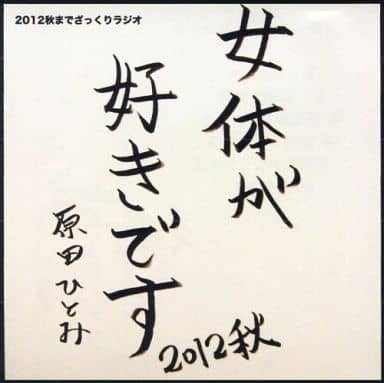 2012秋までざっくりラジオ
女体が
好きです
2012秋
原田ひとみ